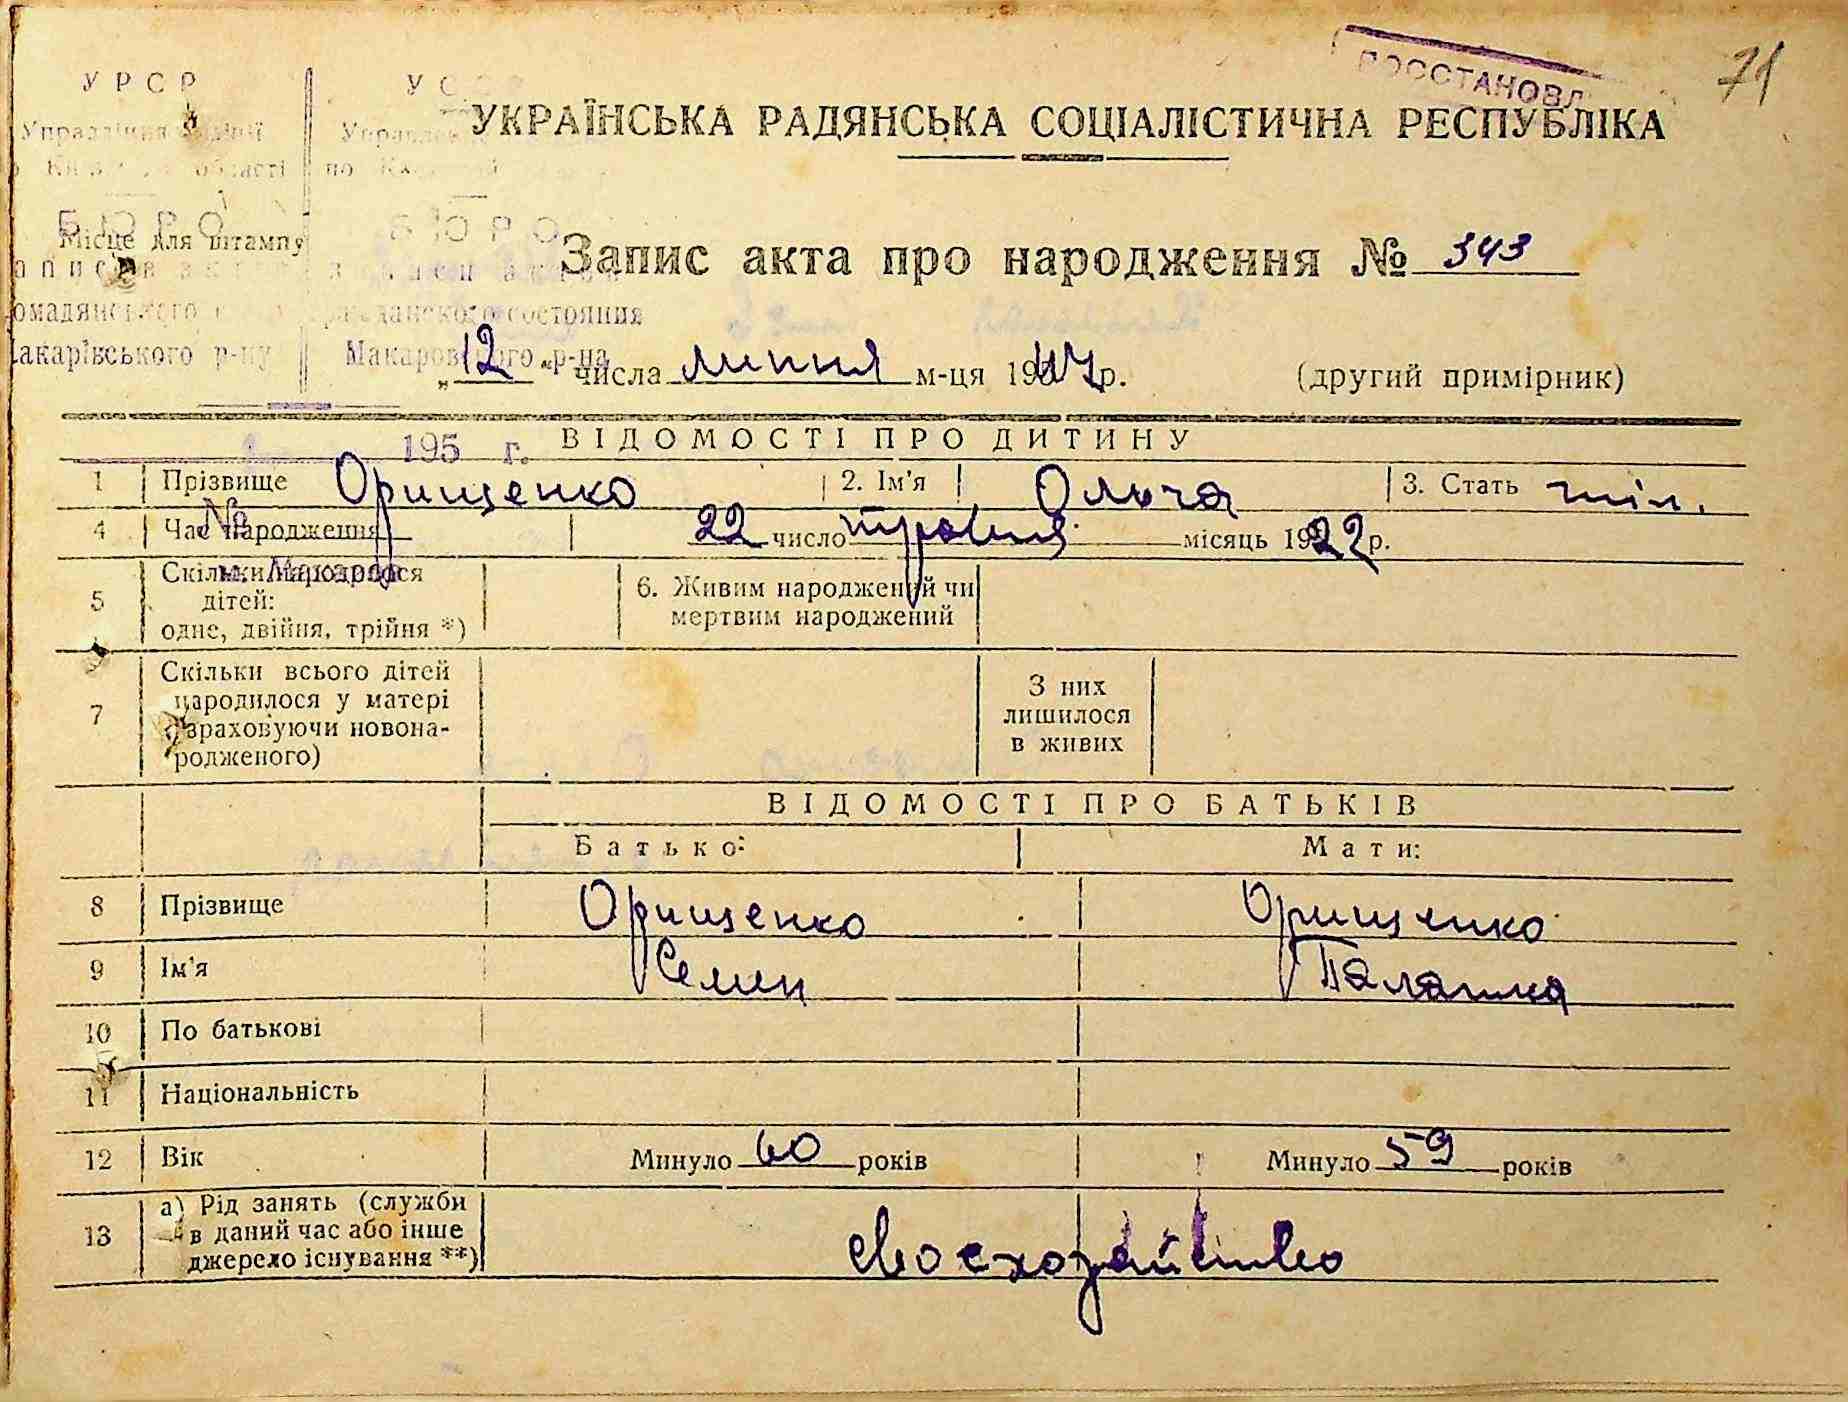 71
УРСР
УССР
УКРАЇНСЬКА РАДЯНСЬКА СОЦІАЛІСТИЧНА РЕСПУБЛІКА
області
по
БЮРО
БЮРО
Місце для штампу
Запис акта про народження № 343
гражданского состояния
Макарівського р-ну
Макаровского р-на
„12“ числа липня м-ця 1947 р. (другий примірник)
195 г.
ВІДОМОСТІ ПРО ДИТИНУ
1 Прізвище Орищенко 2. Ім'я Ольга 3. Стать
№
4 Час народження 22 число травня місяць 1922 р.
м. Макаров
5 Скільки народилося
дітей:
одне, двійня, трійня *)
6. Живим народжений чи
мертвим народжений
7 Скільки всього дітей
народилося у матері
(враховуючи новона-
родженого)
З них
лишилося
в живих
ВІДОМОСТІ ПРО БАТЬКІВ
Батько: Мати:
8 Прізвище Орищенко Орищенко
9 Ім'я Семен Палашка
10 По батькові
11 Національність
12 Вік Минуло 60 років Минуло 59 років
13 а) Рід занять (служби
в даний час або інше
джерело існування **)
своє хозяйство